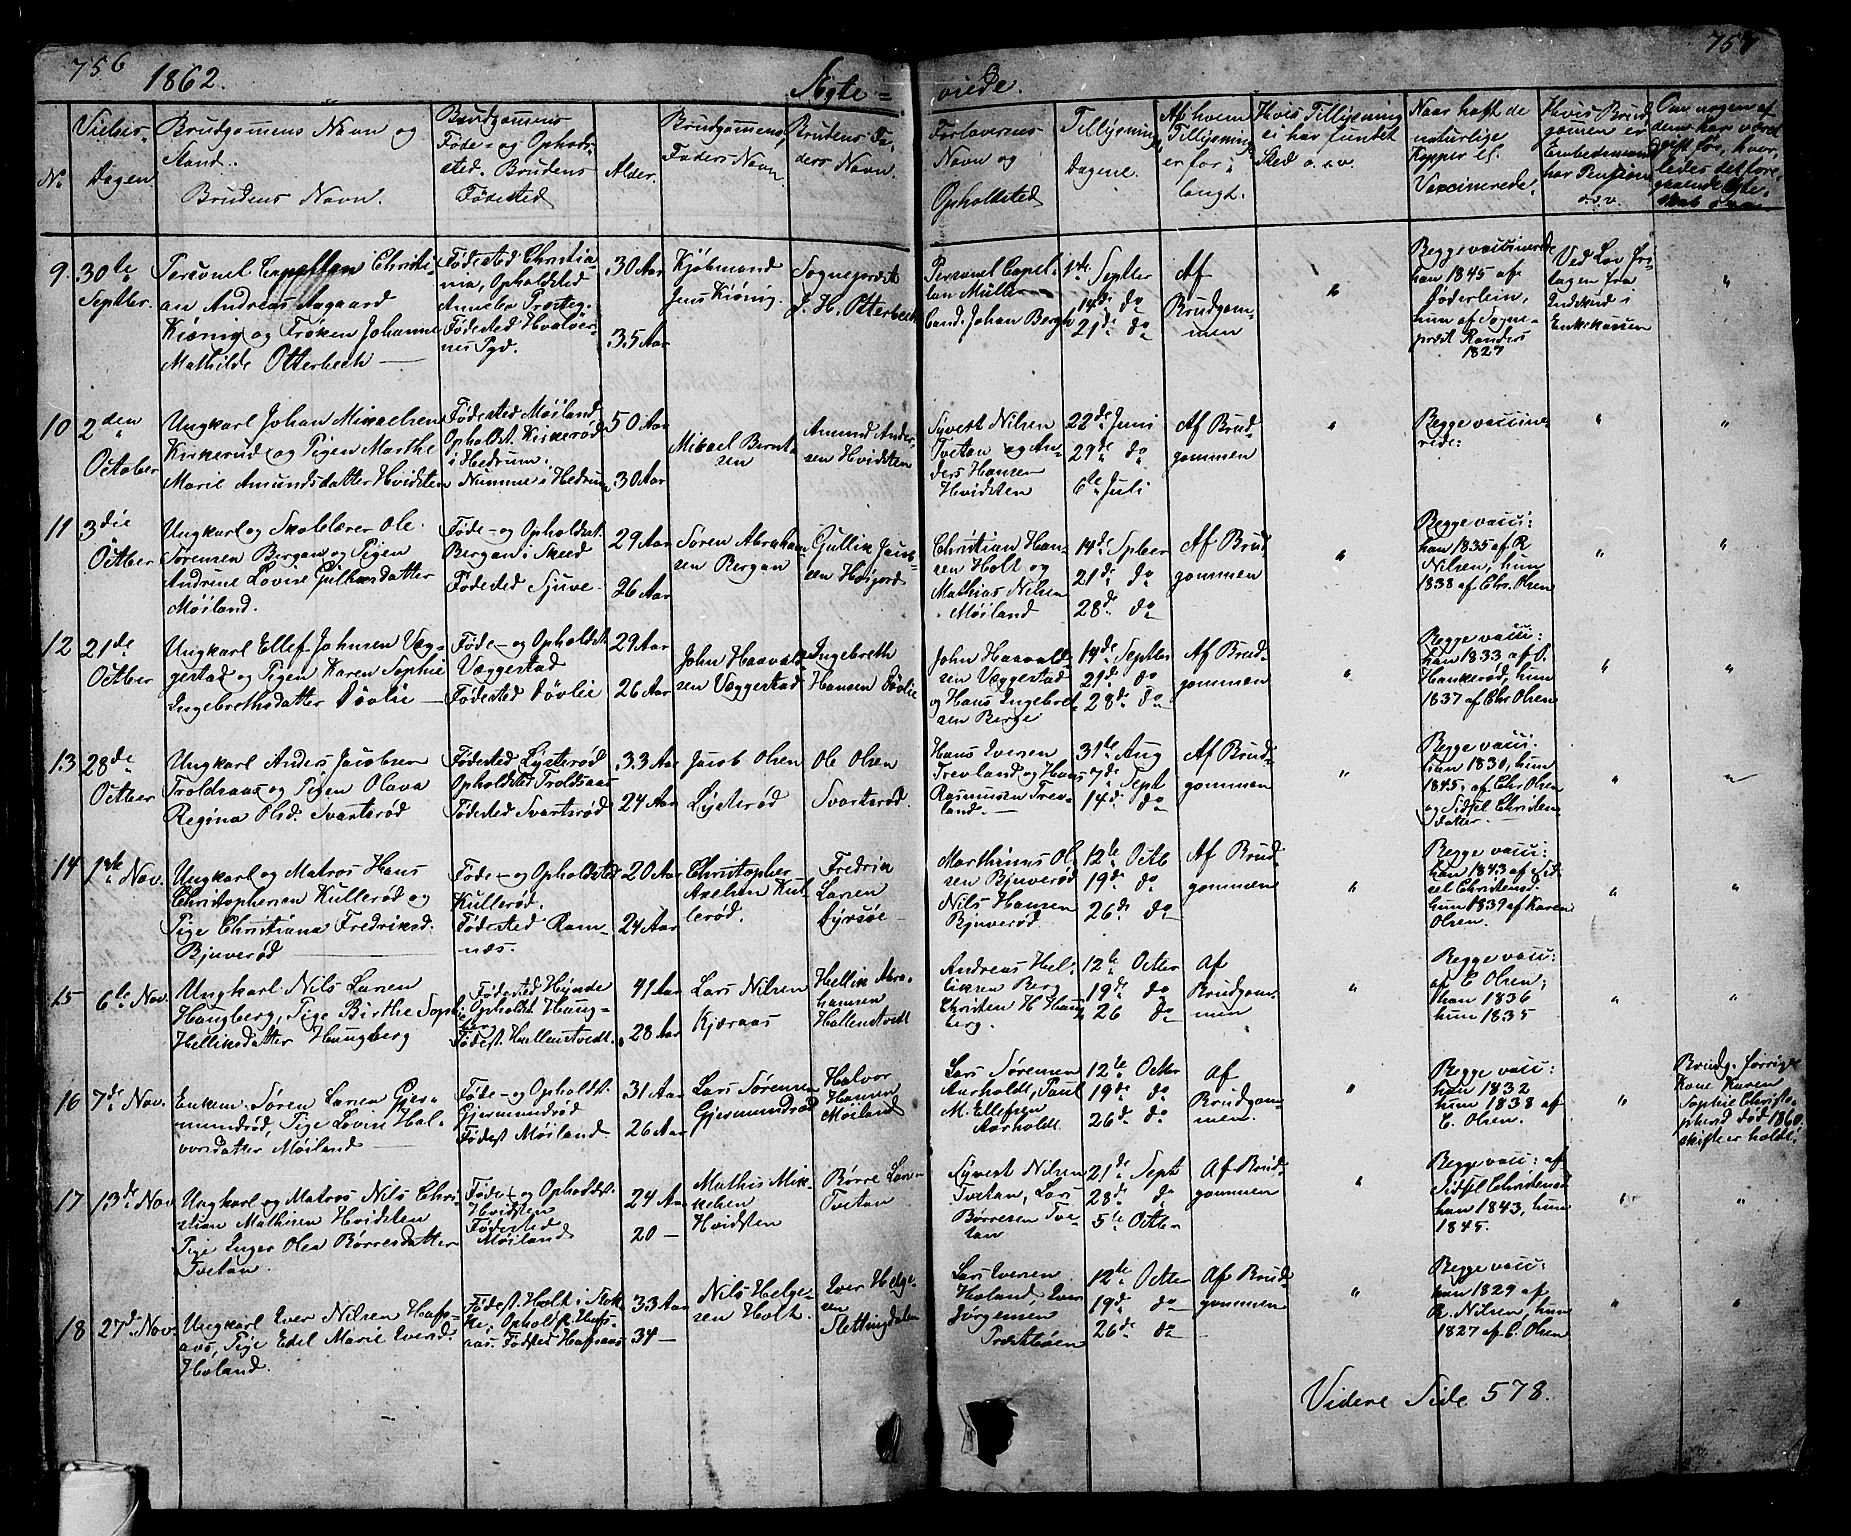 756
1862.
Ægte-
viede.
757
No.
Vielses-
Dagen
Brudgommens Navn og
Stand.
Brudens Navn.
Brudgommens
Føde- og Opholds-
sted. Brudens
Fødested
Alder.
Brudgommens
Faders Navn.
Brudens Fa-
ders Navn.
Forlovernes
Navn og
Opholdsted
Tillysnings
Dagene.
Af hvem
Tillysning
er for-
langt.
Hvis Tillysning
ei har fundet
Sted o.s.v.
Naar haft de
naturlige
Kopper el.
Vaccinerede.
Hvis Brud-
gommen er
Embedsmand
har Pension
o.s.v.
Om nogen af
dem har været
gift før, hvor-
ledes det fore-
gaaende Ægte-
skab
9.
30te
Septber.
Personel Capellan Christi-
an Andreas Aagaard
Kiønig og Frøken Johanne
Mathilde Otterbech —
Fødested Christia-
nia, Opholdsted
Annebo Præsteg.
Fødested Hvaløer-
nes Pgd.
30 Aar
35 Aar
Kjøbmand
Jens Kiønig
Sognepræst
J. H. Otterbech
Personel Capel-
lan Müller
Cand. Johan Bergh
1ste Septber
14de do
21de do
Af
Brudgom-
men
"
Begge vaccinerede
han 1845 af
Søderlein,
hun af Sogne-
præst Randers
1827
Ved Lov fri-
tagen fra
Indskud i
Enkekassen
"
10
2den
October
Ungkarl Johan Mikkelsen
Kirkerud og Pigen Marthe
Marie Amundsdatter Hvidsten
Fødested Møiland
Opholdst. Kirkerød
i Hedrum.
Numme i Hedrum
50 Aar
30 Aar
Mikael Bernt
sen
Amund Ander-
sen Hvidsten
Syvert Nilsen
Tvetan og An-
ders Hansen
Hvidsten
22de Juni
29de do
6te Juli
Af Brud-
gommen
"
Begge vaccine-
rede:
"
"
11
3die
Octber
Ungkarl og Skolelærer Ole
Sørensen Bergan og Pigen
Andrine Lovise Gulliksdatter
Møiland.
Føde- og Opholdst.
Bergan i Skeed
Fødested Sjuve
29 Aar
26 Aar
Søren Abraham
sen Bergan
Gullik Jacob
sen Høigord
Christian Han-
sen Holt og
Mathias Nilsen
Møiland
14de Spber
21de do
28de do
Af Brud
gommen
"
Begge vacci:
han 1835 af R
Nilsen, hun
1838 af Chr. Olsen
"
"
12
21de
Octber
Ungkarl Ellef Johnsen Væg-
gestad og Pigen Karen Sophie
Ingebrethsdatter Døvlie —
Føde- og Opholdst.
Væggestad
Fødested Døvlie
29 Aar
26 Aar
John Haavald-
sen Væggestad
Ingebreth
Hansen Døvlie
John Haavald-
sen Væggestad
og Hans Ingebret
sen Berge
14de Septber
21de do
28de do
Af Brud-
gommen
"
Begge vacci:
han 1833 af
Hankerød, hun
1837 af Chr Olsen
"
"
13
28de
Octber
Ungkarl Anders Jacobsen
Troldsaas og Pigen Olava
Regina Olsd. Svartsrød
Fødested Lysterød
Opholdsted Troldsaas
Fødested Svartsrød
33 Aar
24 Aar
Jacob Olsen
Lysterød
Ole Olsen
Svartsrød.
Hans Iversen
Trevland og Hans
Rasmussen Trev-
land. —
31te Aug
7de Sept
14de do
Af Brud-
gommen
"
Begge vacci.
han 1830, hun
1845, af Chr Olsen
og Sidsel Christens
datter.
"
"
14
1ste Nov.
Ungkarl og Matros Hans
Christophersen Kullerød og
Pige Christiana Fredriksd.
Bjuverød
Føde- og Opholdsted
Kullerød.
Fødested Ram-
næs.
20 Aar
24 Aar
Christopher
Axelsen Kul
lerød.
Fredrik
Larsen
Fyrsøe
Marthinus Ol
sen Bjuverød
Nils Hansen
Bjuverød
12te Octb
19de do
26de do
Af Brud
gommen
"
Begge vacci:
han 1843 af Sid-
sel Christensd.
hun 1839 af Karen
Olsen.
"
"
15
6te Nov.
Ungkarl Nils Larsen
Haugberg, Pige Birthe Soph
Helliksdatter Haugberg
Fødested Hynde
Opholdst Haug-
berg
Fødest. Hallenstvedt.
41 Aar
28 Aar
Lars Nilsen
Kjæraas
Hellik Abra-
hamsen
Hallenstvedt
Andreas Hel-
liksen Berg
Christen H Haug
berg.
12te Octber
19de do
26 do
Af
Brudgom-
men
"
Begge vacci:
af C Olsen;
han 1836
hun 1835
"
"
16
7de Nov.
Enkem. Søren Larsen Gjer-
mundrød, Pige Lovise Hal-
vorsdatter Møiland
Føde- og Opholdst.
Gjermundrød
Fødest Møiland.
31 Aar
26 Aar
Lars Sørensen
Gjermundrød
Halvor
Hansen
Møiland
Lars Sørensen
Aarholdt, Paul
M. Ellefsen
Aarholdt.
12te Octber
19de do
26de do
Af
Brudgom-
men.
"
Begge vacci:
han 1832
hun 1838 af
C. Olsen.
"
Brudg. forrige
Kone Karen
Sophie Christo-
phersd død 1860
skifte er holdt.
17
13de Nov
Ungkarl og Matros Nils Chri-
stian Mathisen Hvidsten
Pige Inger Olea Børresdatter
Tvetan.
Føde- og Opholdst.
Hvidsten
Fødested
Møiland
24 Aar
20 —
Mathis Mik
kelsen
Hvidsten
Børre Larsen
Tvetan
Syvert Nilsen
Tvetan, Lars
Børresen Tve-
tan
21de Sept
28de do
5te Octber
Af Brud-
gommen
"
Begge vacc: af
Sidsel Christensd
han 1843, hun
1845.
"
"
18
27de Nov.
Ungkarl Iver Nilsen Hafs-
aas, Pige Edel Marie Iversd:
Holand.
Fødest. Holt i Stok-
ke, Opholdst Hafs-
aas. Fødsted Hafsaas
33 Aar
34 —
Nils Helge-
sen Holt.
Iver Helge-
sen
Slettingdalen
Lars Iversen
Holand, Iver
Jørgensen
Præstøen
12te Octber
19de do
26de do
Af Brud
gommen
"
Begge vacci:
han 1829 af
R. Nilsen, hun
1827 af C. Olsen
"
"
Videre Side 578.